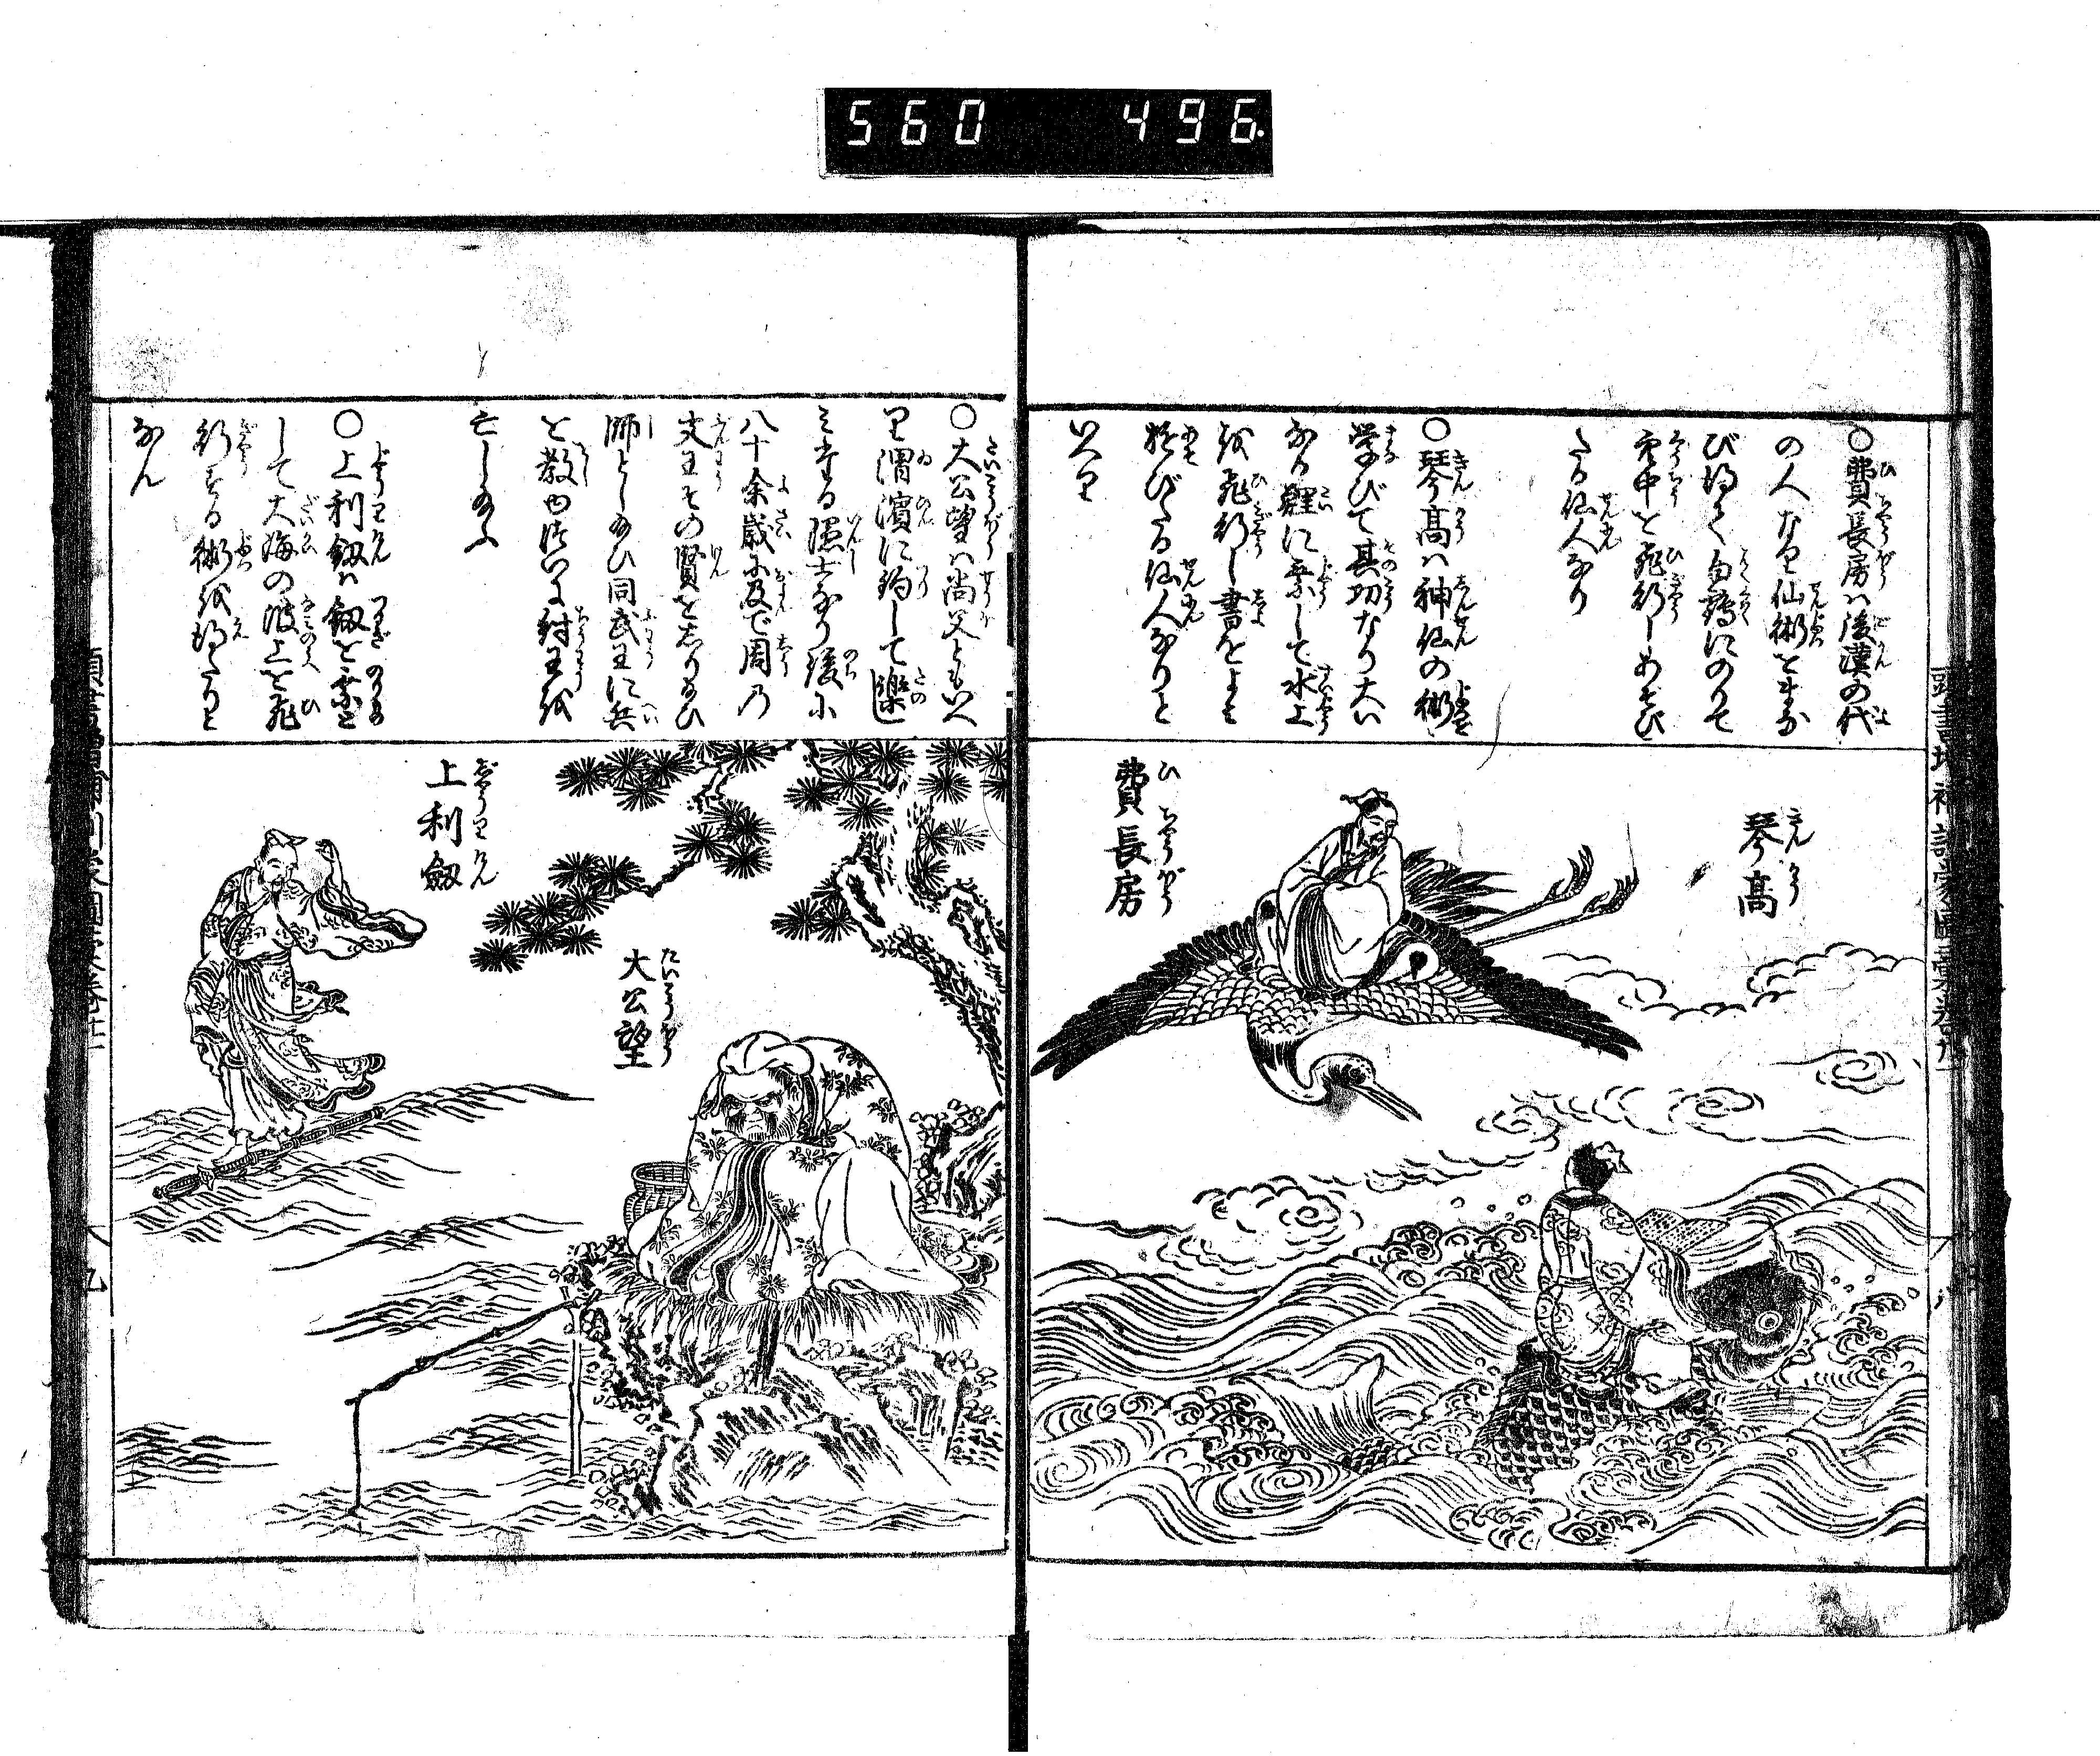 560 496.
○費長房ハ後漢の代
の人なり仙術をまな
び得て白鶴にのりて
空中を飛行しあそび
たる仙人なり
○琴高ハ神仙の術
学びて其功なり大い
なる鯉に乗して水上
を飛行し書をよみ
遊びたる仙人なりと
いへり
琴高
きんかう
費長房
ひちやうばう
○大公望ハ尚父ともいへ
り渭濱に釣して楽し
ミける隠士なり後に
八十余歳に及で周の
文王その賢をしり給ひ
師とし給ひ同武王に兵
を教ゆつゐに紂王を
亡し給ふ
○上利劔ハ劔を乗と
して大海の波上を飛
行する術を得たりと
なん
大公望
たいこうばう
上利劔
じやうりけん